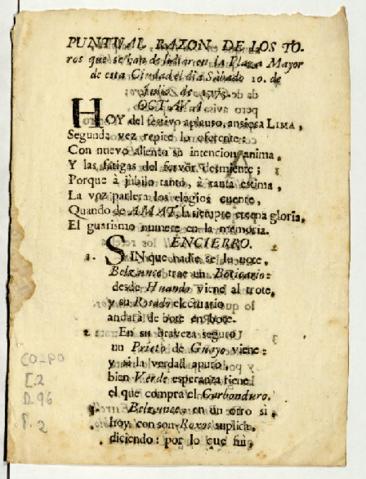 PUNTUAL RAZON DE LOS TO-
ros que se han de lidiar en la Plaza Mayor
de esta Ciudad el dia Sabado 10. de
OCTAVA.
HOY del festivo aplauso, ansiosa LIMA,
Segunda vez repite lo oferente:
Con nuevo aliento su intencion anima,
Y las fatigas del fervor desmiente;
Porque à jubilo tanto, à tanta estima,
La voz parlera los elogios cuente,
Quando de AMAT, la siempre eterna gloria,
El guarismo numere en la memoria.
ENCIERRO.
1. SIN que nadie se lo note,
Belzunce trae un Boticario:
desde Huando viene al trote,
y su Rosado electuario
andará de bote en bote.
2. En su braveza seguro
un Prieto de Guayo viene:
y si la verdad apuro,
bien Verde esperanza tiene
el que compra el Carbonduro.
3. Belzunce, en un otro si,
hoy con son Roxos suplica,
diciendo: por lo que fui,
CO-PO
D.96
P.2